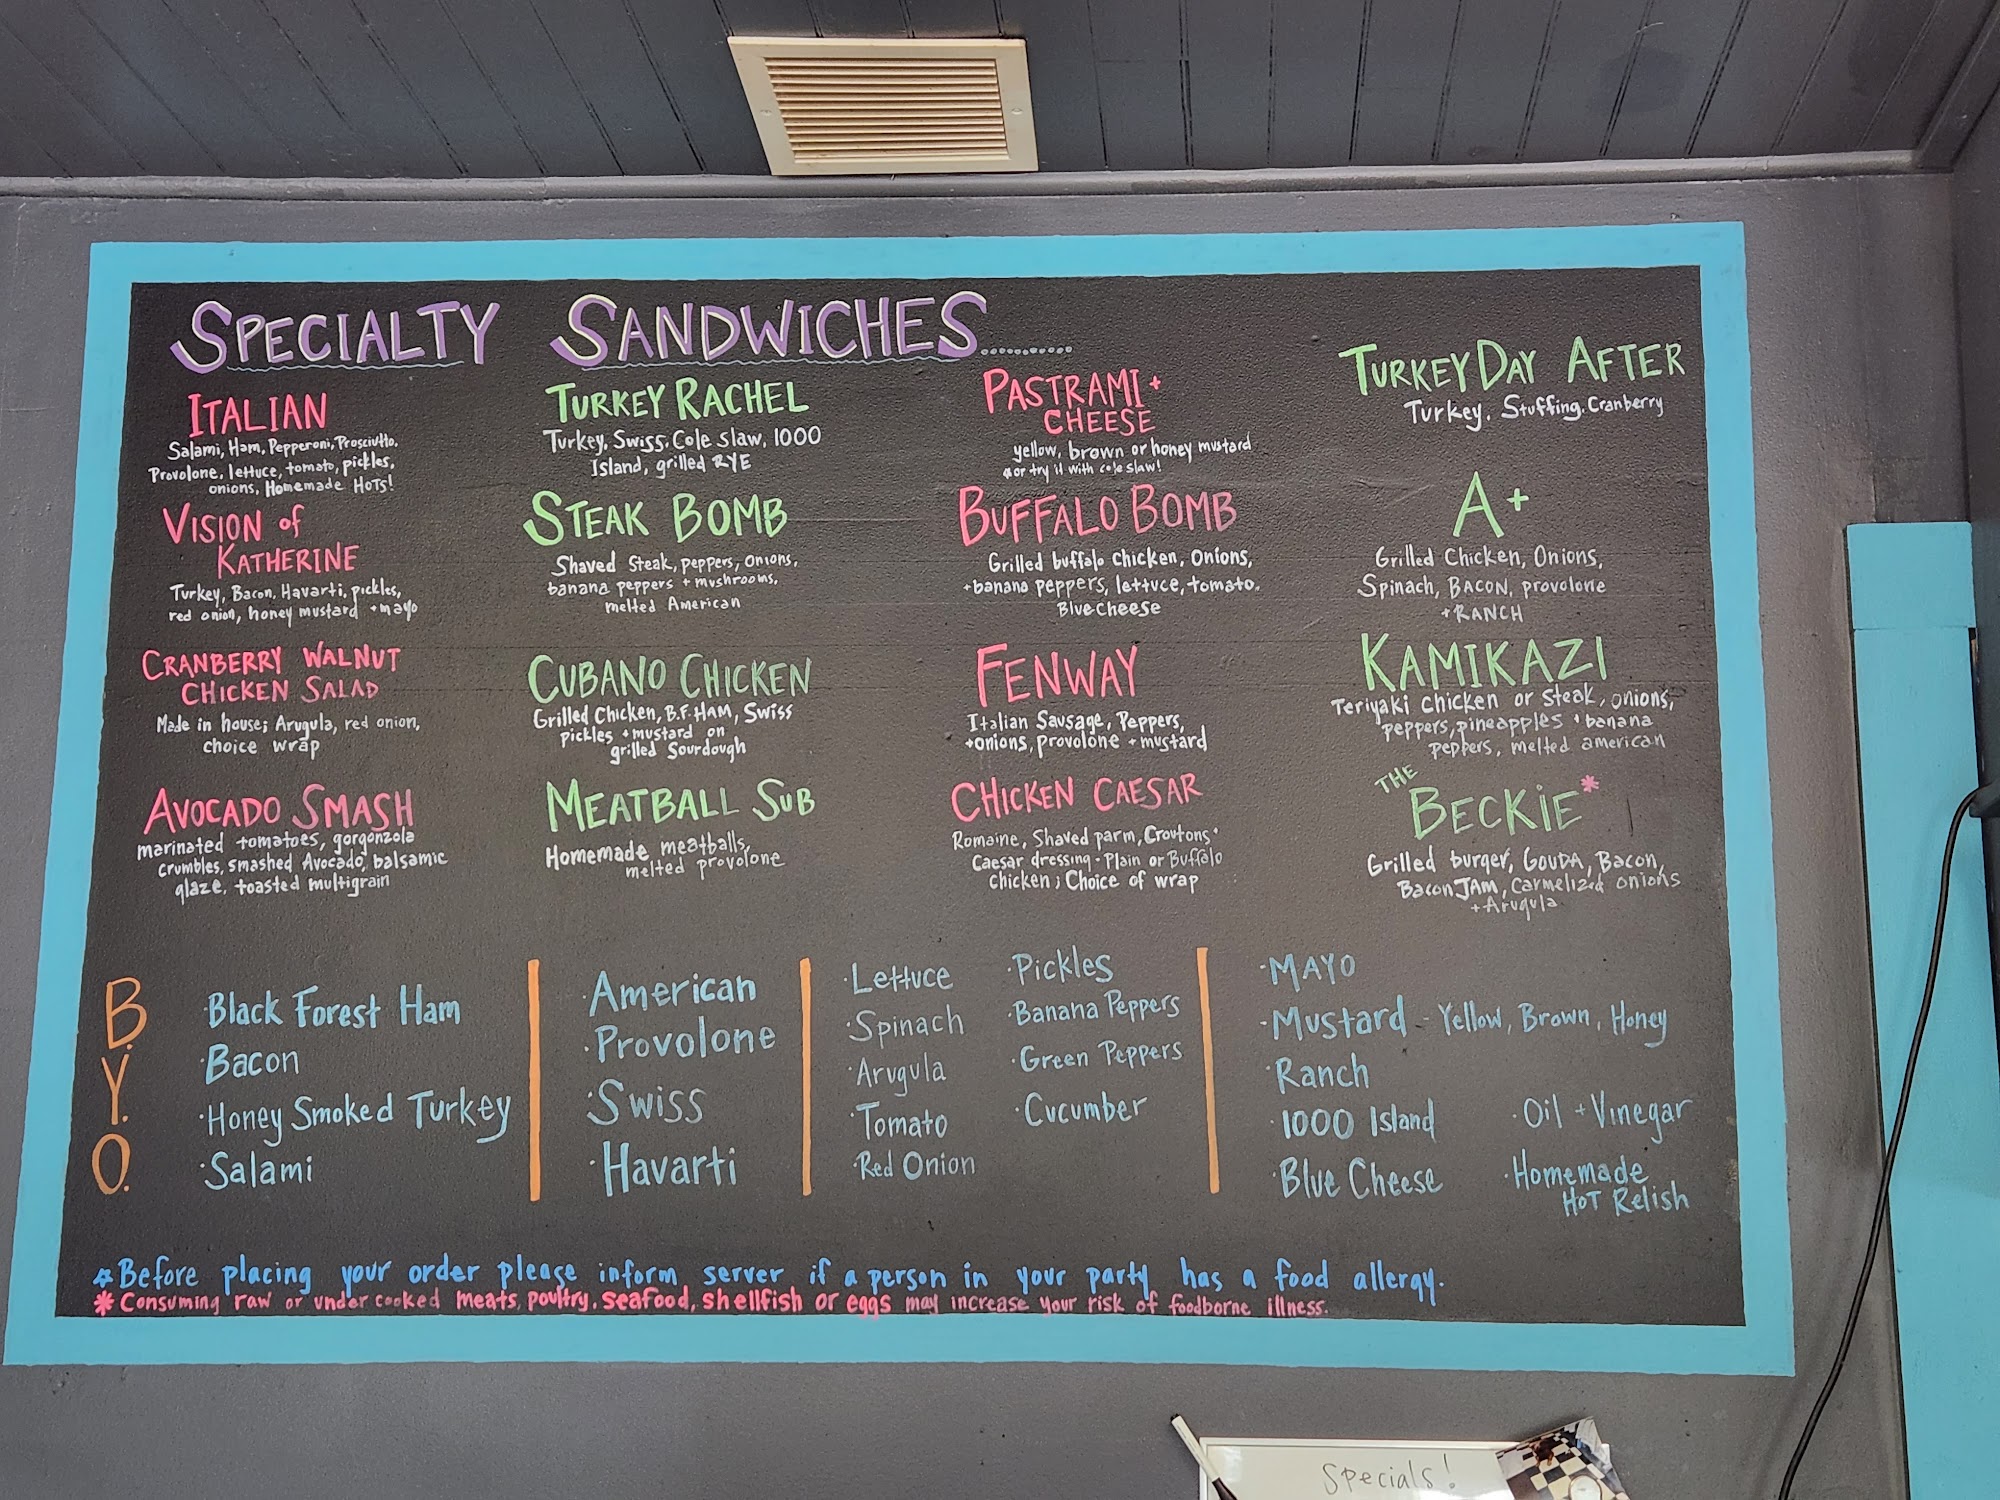 SPECIALTY SANDWICHES..........
ITALIAN
Salami, Ham, Pepperoni, Prosciutto,
Provolone, lettuce, tomato, pickles,
onions, Homemade HOTS!
VISION of
KATHERINE
Turkey, Bacon, Havarti, pickles,
red onion, honey mustard + mayo
CRANBERRY WALNUT
CHICKEN SALAD
Made in house; Arugula, red onion,
choice wrap
AVOCADO SMASH
marinated tomatoes, gorgonzola
crumbles, smashed Avocado, balsamic
glaze, toasted multigrain
TURKEY RACHEL
Turkey, Swiss, Cole slaw, 1000
Island, grilled RYE
STEAK BOMB
Shaved Steak, peppers, onions,
banana peppers + mushrooms,
melted American
CUBANO CHICKEN
Grilled Chicken, B.F. HAM, Swiss
pickles + mustard on
grilled Sourdough
MEATBALL SUB
Homemade meatballs,
melted provolone
PASTRAMI +
CHEESE
yellow, brown or honey mustard
*or try it with cole slaw!
BUFFALO BOMB
Grilled buffalo Chicken, Onions,
+banana peppers, lettuce, tomato.
Blue cheese
FENWAY
Italian Sausage, Peppers,
+onions, provolone + mustard
CHICKEN CAESAR
Romaine, Shaved parm, Croutons.
Caesar dressing - Plain or Buffalo
Chicken; Choice of wrap
TURKEY DAY AFTER
Turkey. Stuffing. Cranberry
A+
Grilled Chicken, Onions,
Spinach, BACON, provolone
+RANCH
KAMIKAZI
Teriyaki Chicken or Steak, onions,
peppers, pineapples + banana
peppers, melted american
THE
BECKIE*
Grilled burger, GOUDA, Bacon,
Bacon JAM, Carmelized onions
+Arugula
B.Y.O.
·Black Forest Ham
·Bacon
·Honey Smoked Turkey
·Salami
·American
·Provolone
·Swiss
·Havarti
·Lettuce
·Spinach
·Arugula
·Tomato
·Red Onion
·Pickles
·Banana Peppers
·Green Peppers
·Cucumber
·MAYO
·Mustard - Yellow, Brown, Honey
·Ranch
·1000 Island
·Blue Cheese
·Oil + Vinegar
·Homemade
HOT RELISH
*Before placing your order please inform server if a person in your party has a food allergy.
*Consuming raw or undercooked meats, poultry, seafood, shellfish or eggs may increase your risk of foodborne illness.
Specials!